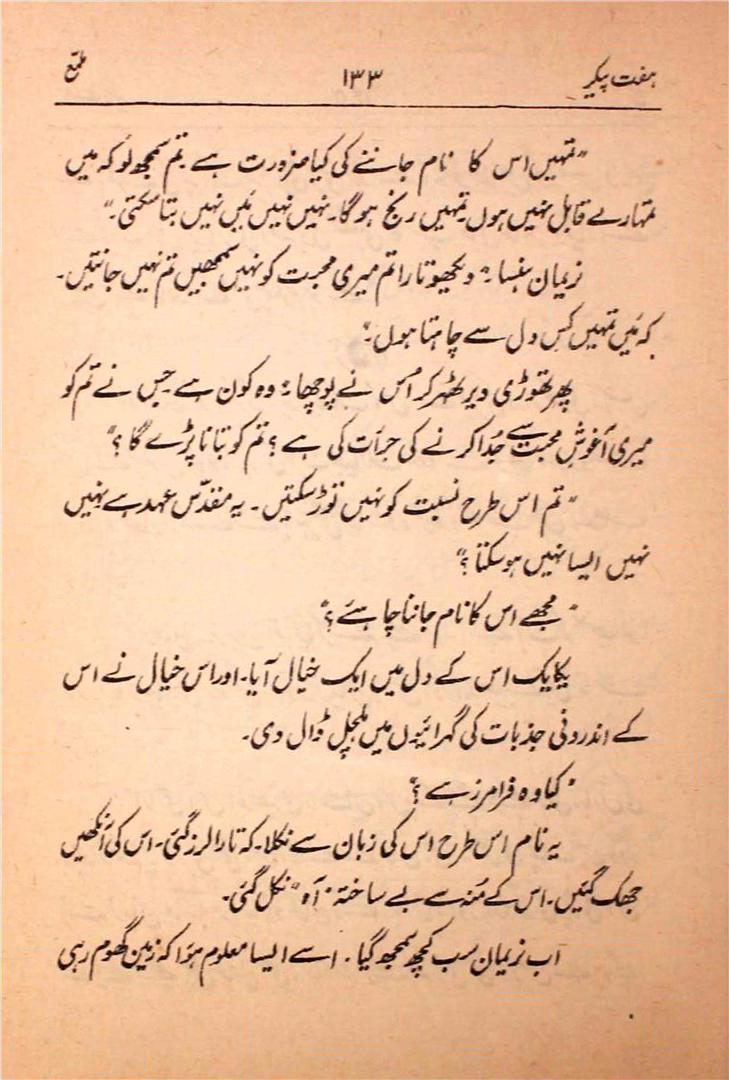 ہفت پیکر ۱۳۳ طمع
”تمہیں اس کا نام جاننے کی کیا ضرورت ہے۔ تم سمجھ لو کہ میں
تمہارے قابل نہیں ہوں۔ تمہیں رنج ہو گا۔ نہیں نہیں میں نہیں بتا سکتی۔“
نریمان ہنسا۔ ”دیکھو تارا تم میری محبت کو نہیں سمجھیں تم نہیں جانتیں۔
کہ میں تمہیں کس دل سے چاہتا ہوں۔“
پھر تھوڑی دیر ٹھہر کر اُس نے پوچھا۔ ”وہ کون ہے جس نے تم کو
میری آغوشِ محبت سے جُدا کرنے کی جرأت کی ہے؟ تم کو بتانا پڑے گا؟“
”تم اس طرح نسبت کو نہیں توڑ سکتیں۔ یہ مقدّس عہد ہے نہیں
نہیں ایسا نہیں ہو سکتا؟“
”مجھے اس کا نام جاننا چاہئے؟“
یکایک اس کے دل میں ایک خیال آیا۔ اور اس خیال نے اس
کے اندرونی جذبات کی گہرائیوں میں ہلچل ڈال دی۔
”کیا وہ فرامرز ہے؟“
یہ نام اس طرح اس کی زبان سے نکلا۔ کہ تارا لرز گئی۔ اس کی آنکھیں
جھک گئیں۔ اس کے مُنہ سے بے ساختہ ”آہ“ نکل گئی۔
اب نریمان سب کچھ سمجھ گیا۔ اسے ایسا معلوم ہؤا کہ زمین گھوم رہی